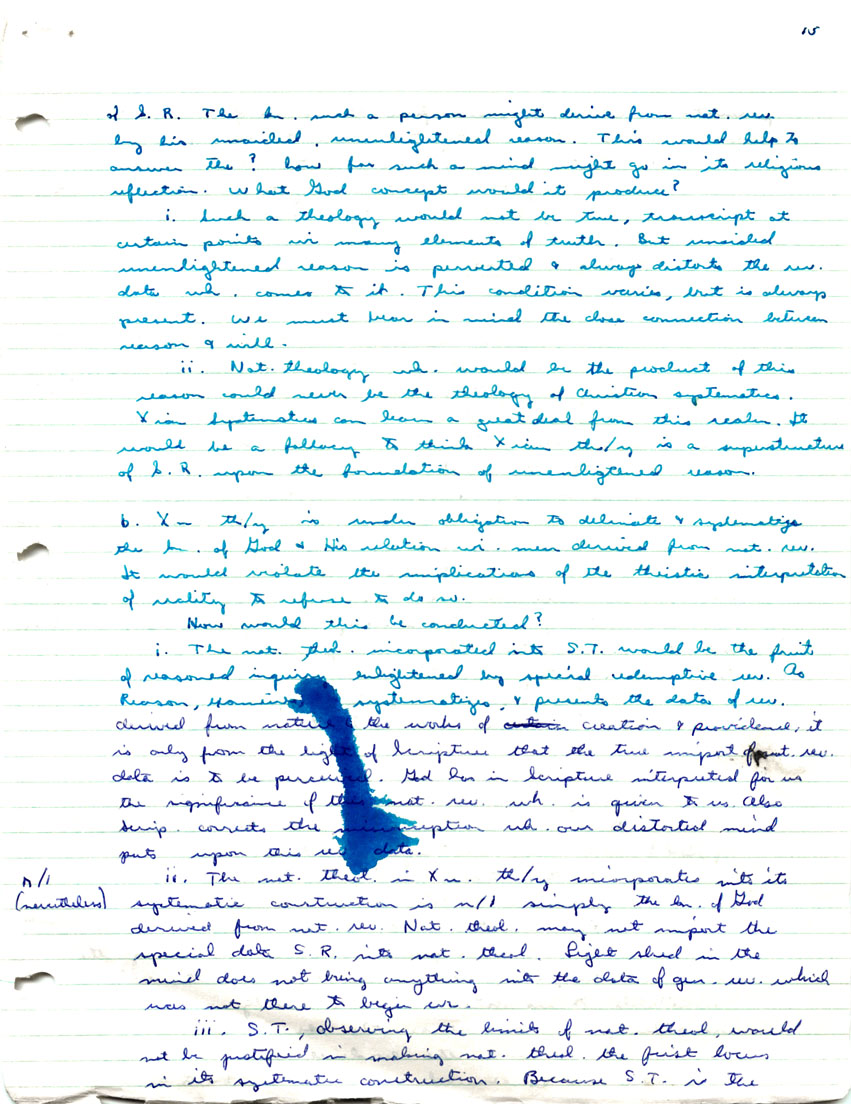 15
of S. R. The kn. such a person might derive from nat. rev.
by his unaided, unenlightened reason. This would help to
answer the ? how far such a mind might go in its religious
reflection. What God concept would it produce?
i. Such a theology would not be true, transcript at
certain points w. many elements of truth. But unaided
unenlightened reason is perverted & always distorts the rev.
data wh. comes to it. This condition varies, but is always
present. We must bear in mind the close connection between
reason & will.
ii. Nat. theology wh. would be the product of this
reason could never be the theology of Christian systematics.
Xian Systematics can learn a great deal from this realm. It
would be a fallacy to think Xian th/y is a superstructure
of S. R. upon the foundation of unenligtened reason.
b. Xn th/y is under obligation to deliniate & systematize
the kn. of God & His relation w. men derived from nat. rev.
It would violate the implications of the theistic interpretation
of reality to refuse to do so.
How would this be conducted?
i. The nat. theol. incorporated into S.T. would be the fruit
of reasoned inquiry enlightened by special redemptive rev. As
Reason, systematizes, & presents the data of rev.
derived from nature & the works of creation & providence, it
is only from the light of Scripture that the true import of nat. rev.
data is to be perceived. God has in Scripture interpreted for us
the significance of this nat. rev. wh. is given to us. Also
Scrip. corrects the misconception wh. our distorted mind
puts upon this rev data.
n/l
ii. The nat. theol. in Xn. th/y incorporates into its
(nevertheless) systematic construction is n/l simply the kn. of God
derived from nat. rev. Nat. theol. may not import the
special data S.R. into nat. theol. Light shed in the
mind does not bring anything into the data of gen. rev. which
was not there to begin w.
iii. S.T., observing the limits of nat. theol, would
not be justified in making nat. theol. the first locus
in its systematic construction. Because S.T. is the